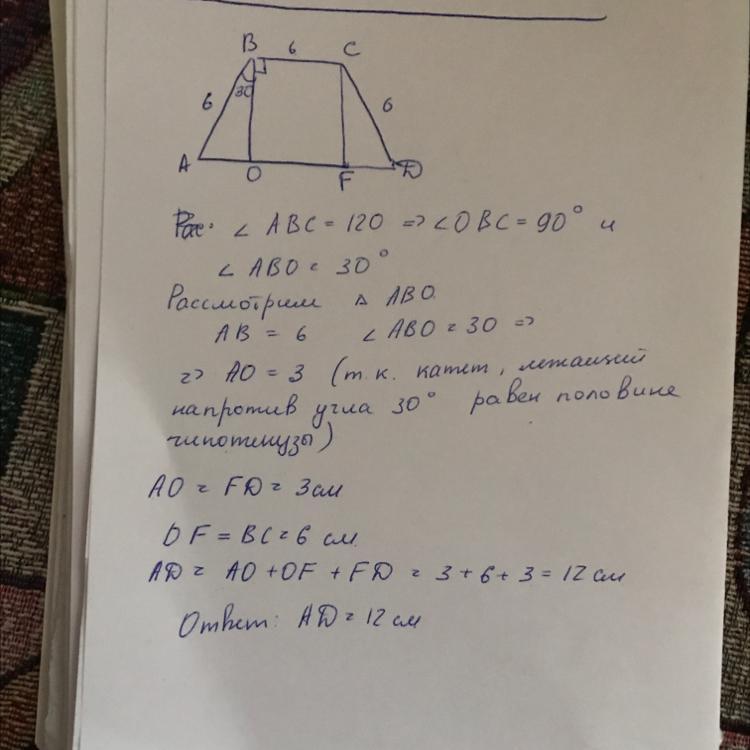 B 6 C
6 30 6
A O F D
∠ ABC = 120 => ∠OBC = 90° и
∠ ABO = 30°
Рассмотрим △ ABO.
AB = 6 ∠ ABO = 30 =>
=> AO = 3 (т.к. катет, лежащий
напротив угла 30° равен половине
гипотенузы)
AO = FD = 3 см
OF = BC = 6 см.
AD = AO + OF + FD = 3 + 6 + 3 = 12 см
Ответ: AD = 12 см